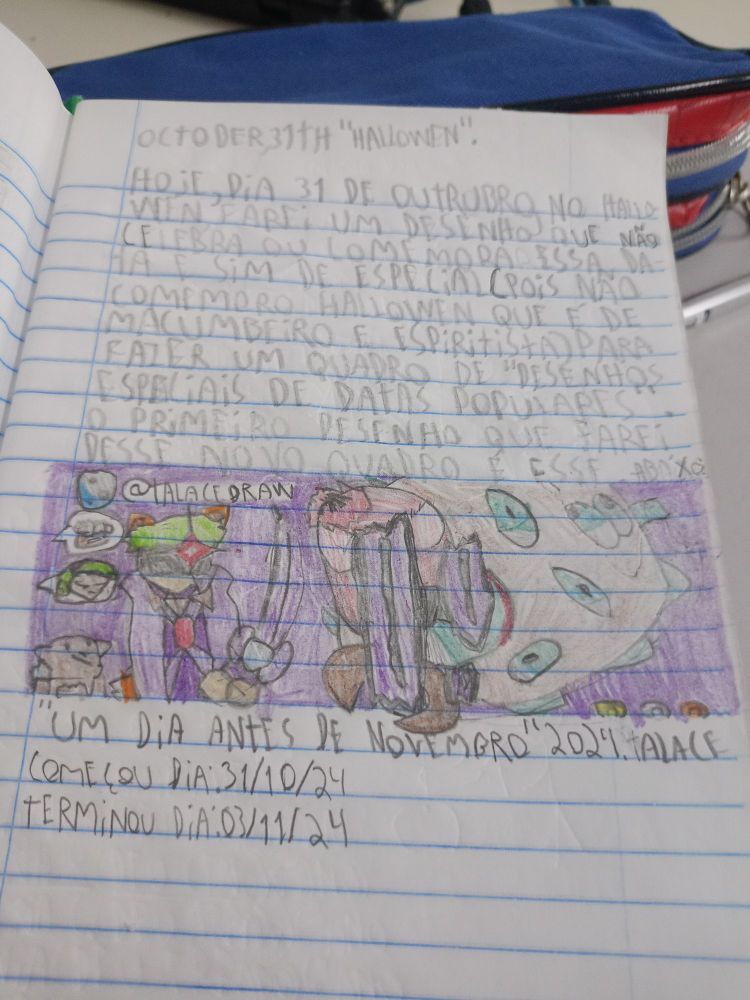 OCTOBER 31TH "HALLOWEN".
HOJE, DIA 31 DE OUTRUBRO NO HALLO
WEN FAREI UM DESENHO QUE NÃO
CELEBRA OU COMEMORA ESSA DA-
TA E SIM DE ESPECIAL (POIS NÃO
COMEMORO HALLOWEN QUE É DE
MACUMBEIRO E ESPIRITISTA) PARA
FAZER UM QUADRO DE "DESENHOS
ESPECIAIS DE DATAS POPULARES".
O PRIMEIRO DESENHO QUE FAREI
DESSE NOVO QUADRO É ESSE ABAIXO:
@TALACEDRAW
"UM DIA ANTES DE NOVEMBRO" 2024.TALACE
COMEÇOU DIA:31/10/24
TERMINOU DIA:03/11/24